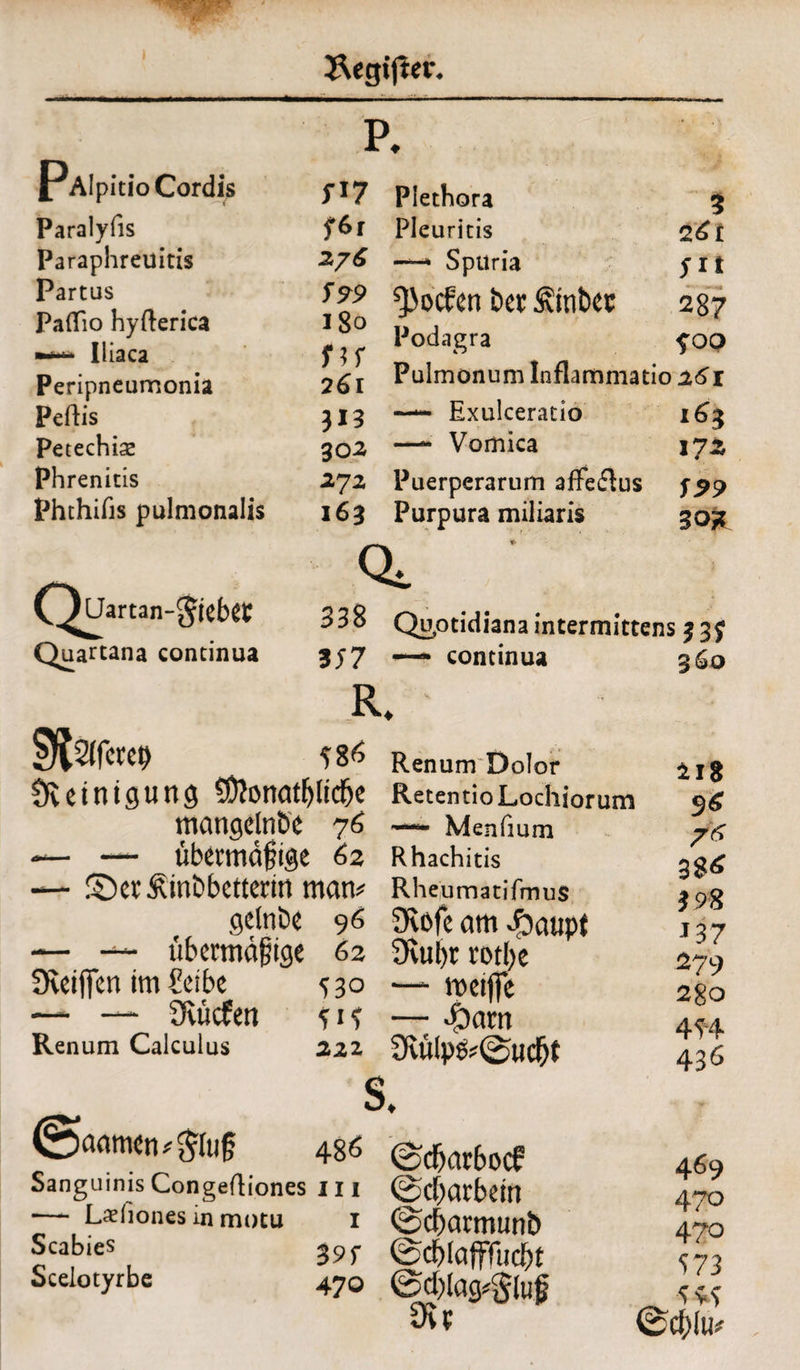 Register.
P.
PAlpitio Cordis 517
Paralysis 561
Paraphreuitis 276
Partus 599
Passio hysterica 180
— Iliaca 535
Peripneumonia 261
Pestis 313
Petechiæ 302
Phrenitis 272
Phthisis pulmonalis 163
Plethora 3
Pleuritis 261
— Spuria 511
Pocken der Kinder 287
Podagra 500
Pulmonum Inflammatio 261
— Exulceratio 163
— Vomica 172
Puerperarum affectus 599
Purpura miliaris
Q.
QUartan-Fieber 338
Quartana continua 357
Quotidiana intermittens 335
— continua 360
R.
RAserey 586
Reinigung Monathliche
mangelnde 76
— — übermäßige 62
— Der Kindbetterin man-
gelnde 96
— — übermäßige 62
Reissen im Leibe 530
— — Rücken 515
Renum Calculus 222
Renum Dolor 218
Retentio Lochiorum 96
— Mensium 76
Rhachitis 386
Rheumatismus 398
Rose am Haupt 137
Ruhr rothe 279
— weisse 280
— Harn 454
Rülps-Sucht 436
S.
Saamen-Fluß 486
Sanguinis Congestiones 111
— Læsiones in motu 1
Scabies 395
Scelotyrbe 470
Scharbock 469
Scharbein 470
Scharmund 470
Schlafffucht 573
Schlag-Fluß 555
Rr Schlu-